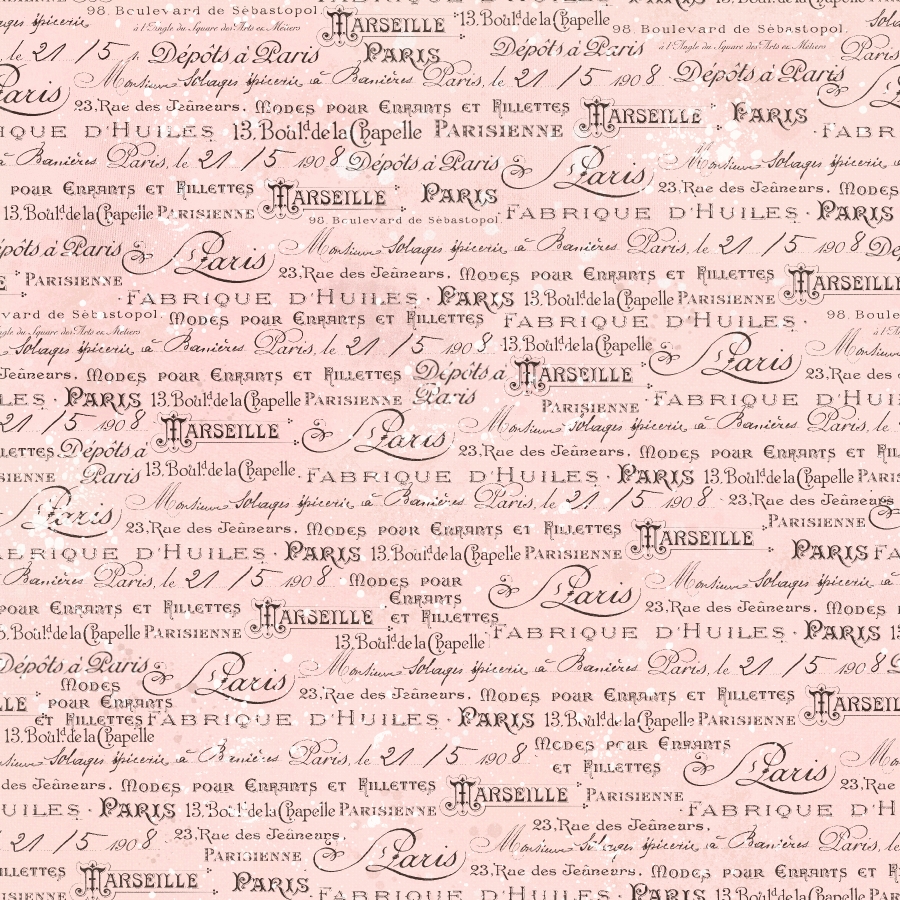 98. Boulevard de Sébastopol. MARSEILLE 13. Boul.d de la Chapelle 98. Boulevard de Sébastopol.
épicerie à l'Angle du Square des Arts et Métiers Dépôts à Paris à l'Angle du Square des Arts et Métiers
le 21 / 5 Dépôts à Paris PARIS Paris
Paris Monsieur Solages épicerie à Banières Paris, le 21 / 5 1908 Dépôts à Paris
23, Rue des Jeâneurs. MODES POUR ENFANTS ET FILLETTES MARSEILLE PARIS
IQUE D'HUILES 13. Boul.d de la Chapelle PARISIENNE FABR
à Banières Paris, le 21 / 5 1908 Dépôts à Paris Paris Monsieur Solages épicerie à
POUR ENFANTS ET FILLETTES MARSEILLE PARIS 23, Rue des Jeâneurs. MODES
13. Boul.d de la Chapelle PARISIENNE 98. Boulevard de Sébastopol. FABRIQUE D'HUILES · PARIS
épôts à Paris Paris Monsieur Solages épicerie à Banières Paris, le 21 / 5 1908 Dé
PARISIENNE 23, Rue des Jeâneurs. MODES POUR ENFANTS ET FILLETTES MARSEILLE
· FABRIQUE D'HUILES · PARIS 13. Boul.d de la Chapelle PARISIENNE
vard de Sébastopol. MODES POUR ENFANTS ET FILLETTES FABRIQUE D'HUILES · 98. Boule
ngle du Square des Arts et Métiers
Solages épicerie à Banières Paris, le 21 / 5 1908 13. Boul.d de la Chapelle Paris Mon
Jeâneurs. MODES POUR ENFANTS ET FILLETTES Dépôts à MARSEILLE 23, Rue des
LES · PARIS 13. Boul.d de la Chapelle PARISIENNE Paris PARISIENNE · FABRIQUE D'HUI
21 / 5 1908 MARSEILLE Paris Monsieur Solages épicerie à Banières Paris, le
LETTES Dépôts à 23, Rue des Jeâneurs. MODES POUR ENFANTS ET FI
SIENNE Paris 13. Boul.d de la Chapelle · FABRIQUE D'HUILES · PARIS 13. Boul.d de la Chapelle PARIS
Paris Monsieur Solages épicerie à Banières Paris, le 21 / 5 1908 23, Rue des Jeâneurs
23, Rue des Jeâneurs. MODES POUR ENFANTS ET FILLETTES MARSEILLE PARISIENNE
ABRIQUE D'HUILES · PARIS 13. Boul.d de la Chapelle PARISIENNE PARIS FA
Banières Paris, le 21 / 5 1908 MODES POUR Paris Monsieur Solages épicerie à
POUR ENFANTS ET FILLETTES MARSEILLE ENFANTS ET FILLETTES 23, Rue des Jeâneurs. MODES
13. Boul.d de la Chapelle PARISIENNE 13. Boul.d de la Chapelle FABRIQUE D'HUILES · PARIS 1
Dépôts à Paris Paris Monsieur Solages épicerie à Banières Paris, le 21 / 5 1908
MODES
LLE POUR ENFANTS 23, Rue des Jeâneurs. MODES POUR ENFANTS ET FILLETTES MARSEILL
ET FILLETTES FABRIQUE D'HUILES · PARIS 13. Boul.d de la Chapelle PARISIENNE
13. Boul.d de la Chapelle
Solages épicerie à Banières Paris, le 21 / 5 1908 MODES POUR ENFANTS Paris Mo
des Jeâneurs. MODES POUR ENFANTS ET FILLETTES MARSEILLE ET FILLETTES PARISIENNE 23, Rue
UILES · PARIS 13. Boul.d de la Chapelle PARISIENNE FABRIQUE D'H
21 / 5 1908 23, Rue des Jeâneurs. 23, Rue des Jeâneurs.
PARISIENNE Paris Monsieur Solages épicerie à Banières Paris, le
LLETTES MARSEILLE PARIS 23, Rue des Jeâneurs. MODES POUR ENFANTS ET F
SIENNE · FABRIQUE D'HUILES · PARIS 13. Boul.d de la Chapelle PARI